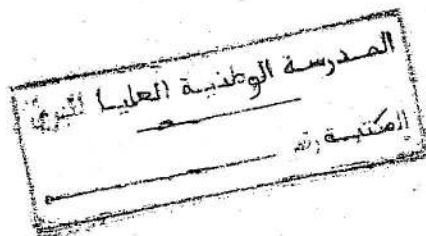 المدرسة الوطنية العليا للري
المكتبة رقم